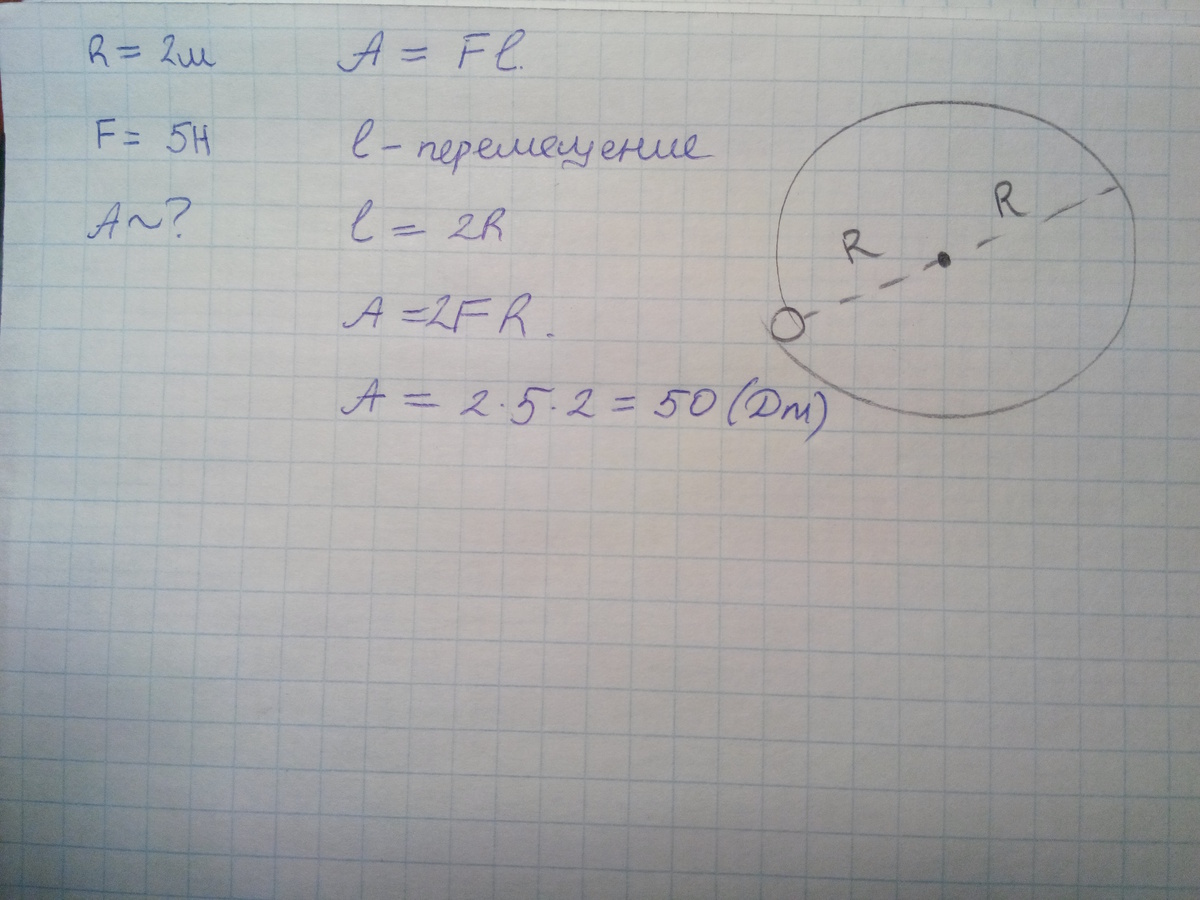 R = 2м
F = 5Н
A ~ ?
A = Fl.
l - перемещение
l = 2R
A = 2FR.
A = 2·5·2 = 50 (Дж)
R
R